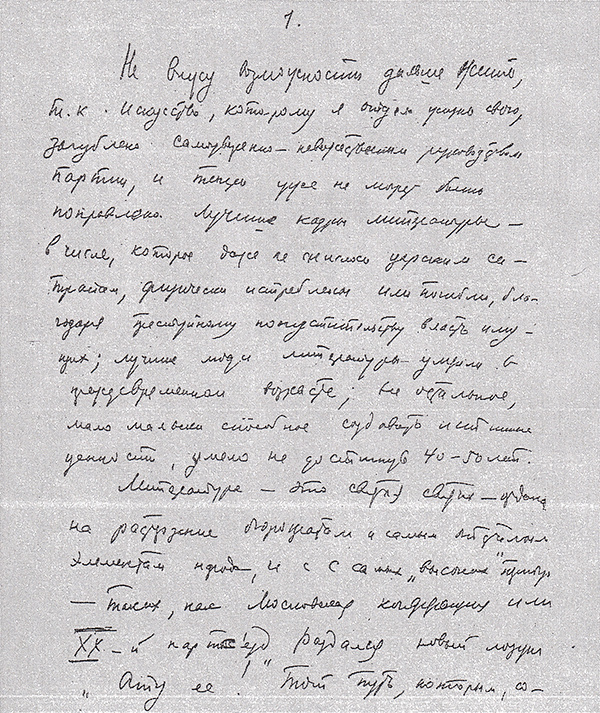 1.
Не вижу возможности дальше жить,
т.к. искусство, которому я отдал жизнь свою,
загублено самоуверенно-невежественным руководством
партии, и теперь уже не может быть
поправлено. Лучшие кадры литературы –
в числе, которое даже не снилось царским са-
трапам, физически истреблены или погибли, бла-
годаря преступному попустительству власть иму-
щих; лучшие люди литературы умерли в
преждевременном возрасте; все остальное,
мало мальски способное создавать истинные
ценности, умерло не достигнув 40–50 лет.
Литература – это святая святых – отдана
на растерзание бюрократам и самым отсталым
элементам народа, и с самых „высоких" трибун
– таких, как Московская конференция или
XX-й партсъезд раздался новый лозунг
„Ату ее!" Тот путь, которым, со-